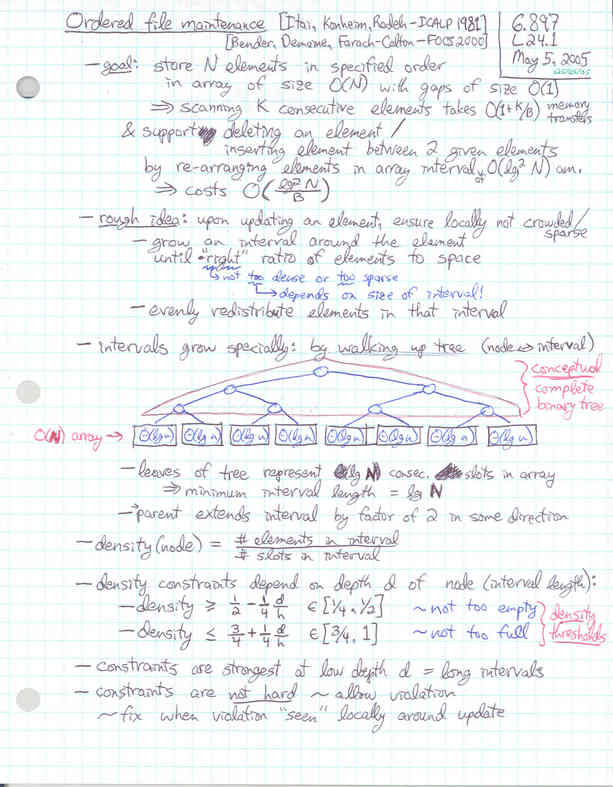 Ordered file maintenance [Itai, Konheim, Rodeh - ICALP 1981]
[Bender, Demaine, Farach-Colton - FOCS 2000]
6.897
L24.1
May 5, 2005
- goal: store N elements in specified order
in array of size O(N) with gaps of size O(1)
⇒ scanning K consecutive elements takes O(1+K/B) memory transfers
& support deleting an element /
inserting element between 2 given elements
by re-arranging elements in array interval of O(lg² N) am.
⇒ costs O(lg² N / B)
- rough idea: upon updating an element, ensure locally not crowded/sparse
- grow an interval around the element
until "right" ratio of elements to space
↳ not too dense or too sparse
↳ depends on size of interval!
- evenly redistribute elements in that interval
- intervals grow specially: by walking up tree (node ↔ interval)
conceptual
complete
binary tree
O(N) array → Θ(lg n) Θ(lg n) Θ(lg n) Θ(lg n) Θ(lg n) Θ(lg n) Θ(lg n) Θ(lg n)
- leaves of tree represent Θ(lg N) consec. slots in array
⇒ minimum interval length = lg N
→ parent extends interval by factor of 2 in some direction
- density(node) = # elements in interval / # slots in interval
- density constraints depend on depth d of node (interval length):
- density ≥ 1/2 - 1/4 d/h ∈ [1/4, 1/2] ~ not too empty
- density ≤ 3/4 + 1/4 d/h ∈ [3/4, 1] ~ not too full
density
thresholds
- constraints are strongest at low depth d = long intervals
- constraints are not hard ~ allow violation
~ fix when violation "seen" locally around update